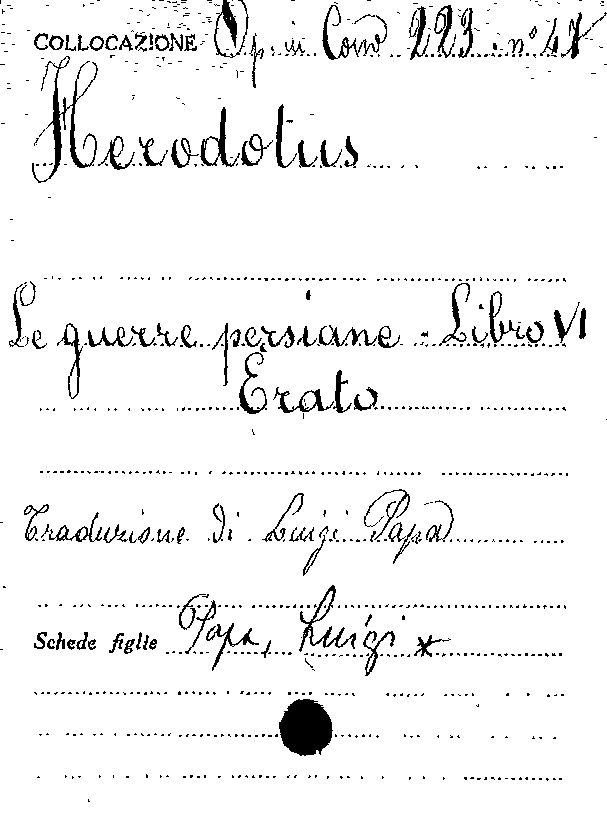 COLLOCAZIONE Op. in Cons 223. n° 47
Herodotus
Le guerre persiane - Libro VI
Erato
Traduzione di Luigi Papa
Schede figlie Papa, Luigi *